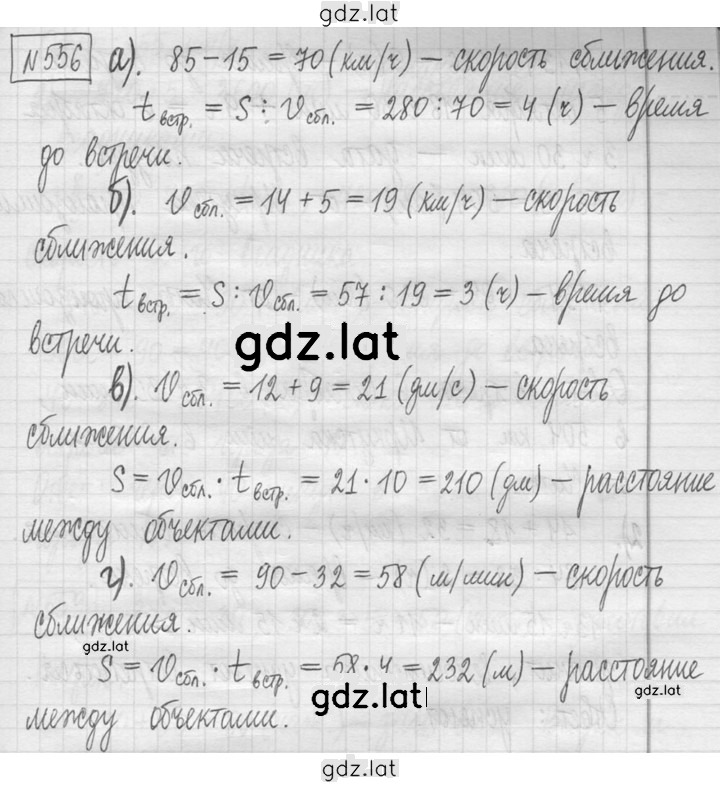 gdz.lat
№556 а). 85-15=70(км/ч) – скорость сближения.
t встр. = S : V сбл. = 280:70=4 (ч) – время
до встречи.
б). V сбл. = 14+5=19 (км/ч) – скорость
сближения.
t встр. = S : V сбл. = 57:19=3 (ч) – время до
встречи.
gdz.lat
в). V сбл. = 12+9=21 (дм/с) – скорость
сближения.
S = V сбл. · t встр. = 21·10=210 (дм) – расстояние
между объектами.
г). V сбл. = 90-32=58 (м/мин) – скорость
сближения.
gdz.lat
S = V сбл. · t встр. = 58·4=232 (м) – расстояние
gdz.lat
gdz.lat
между объектами.
gdz.lat